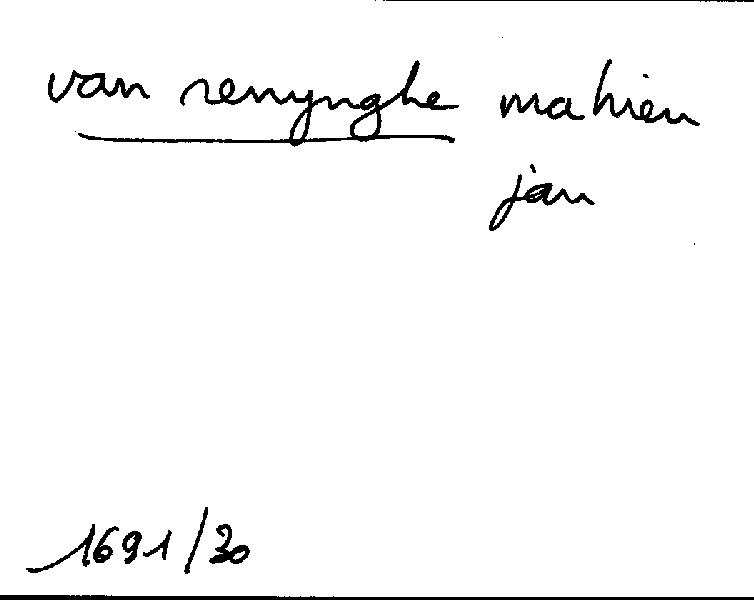 van renynghe mahieu
jan
1691/30